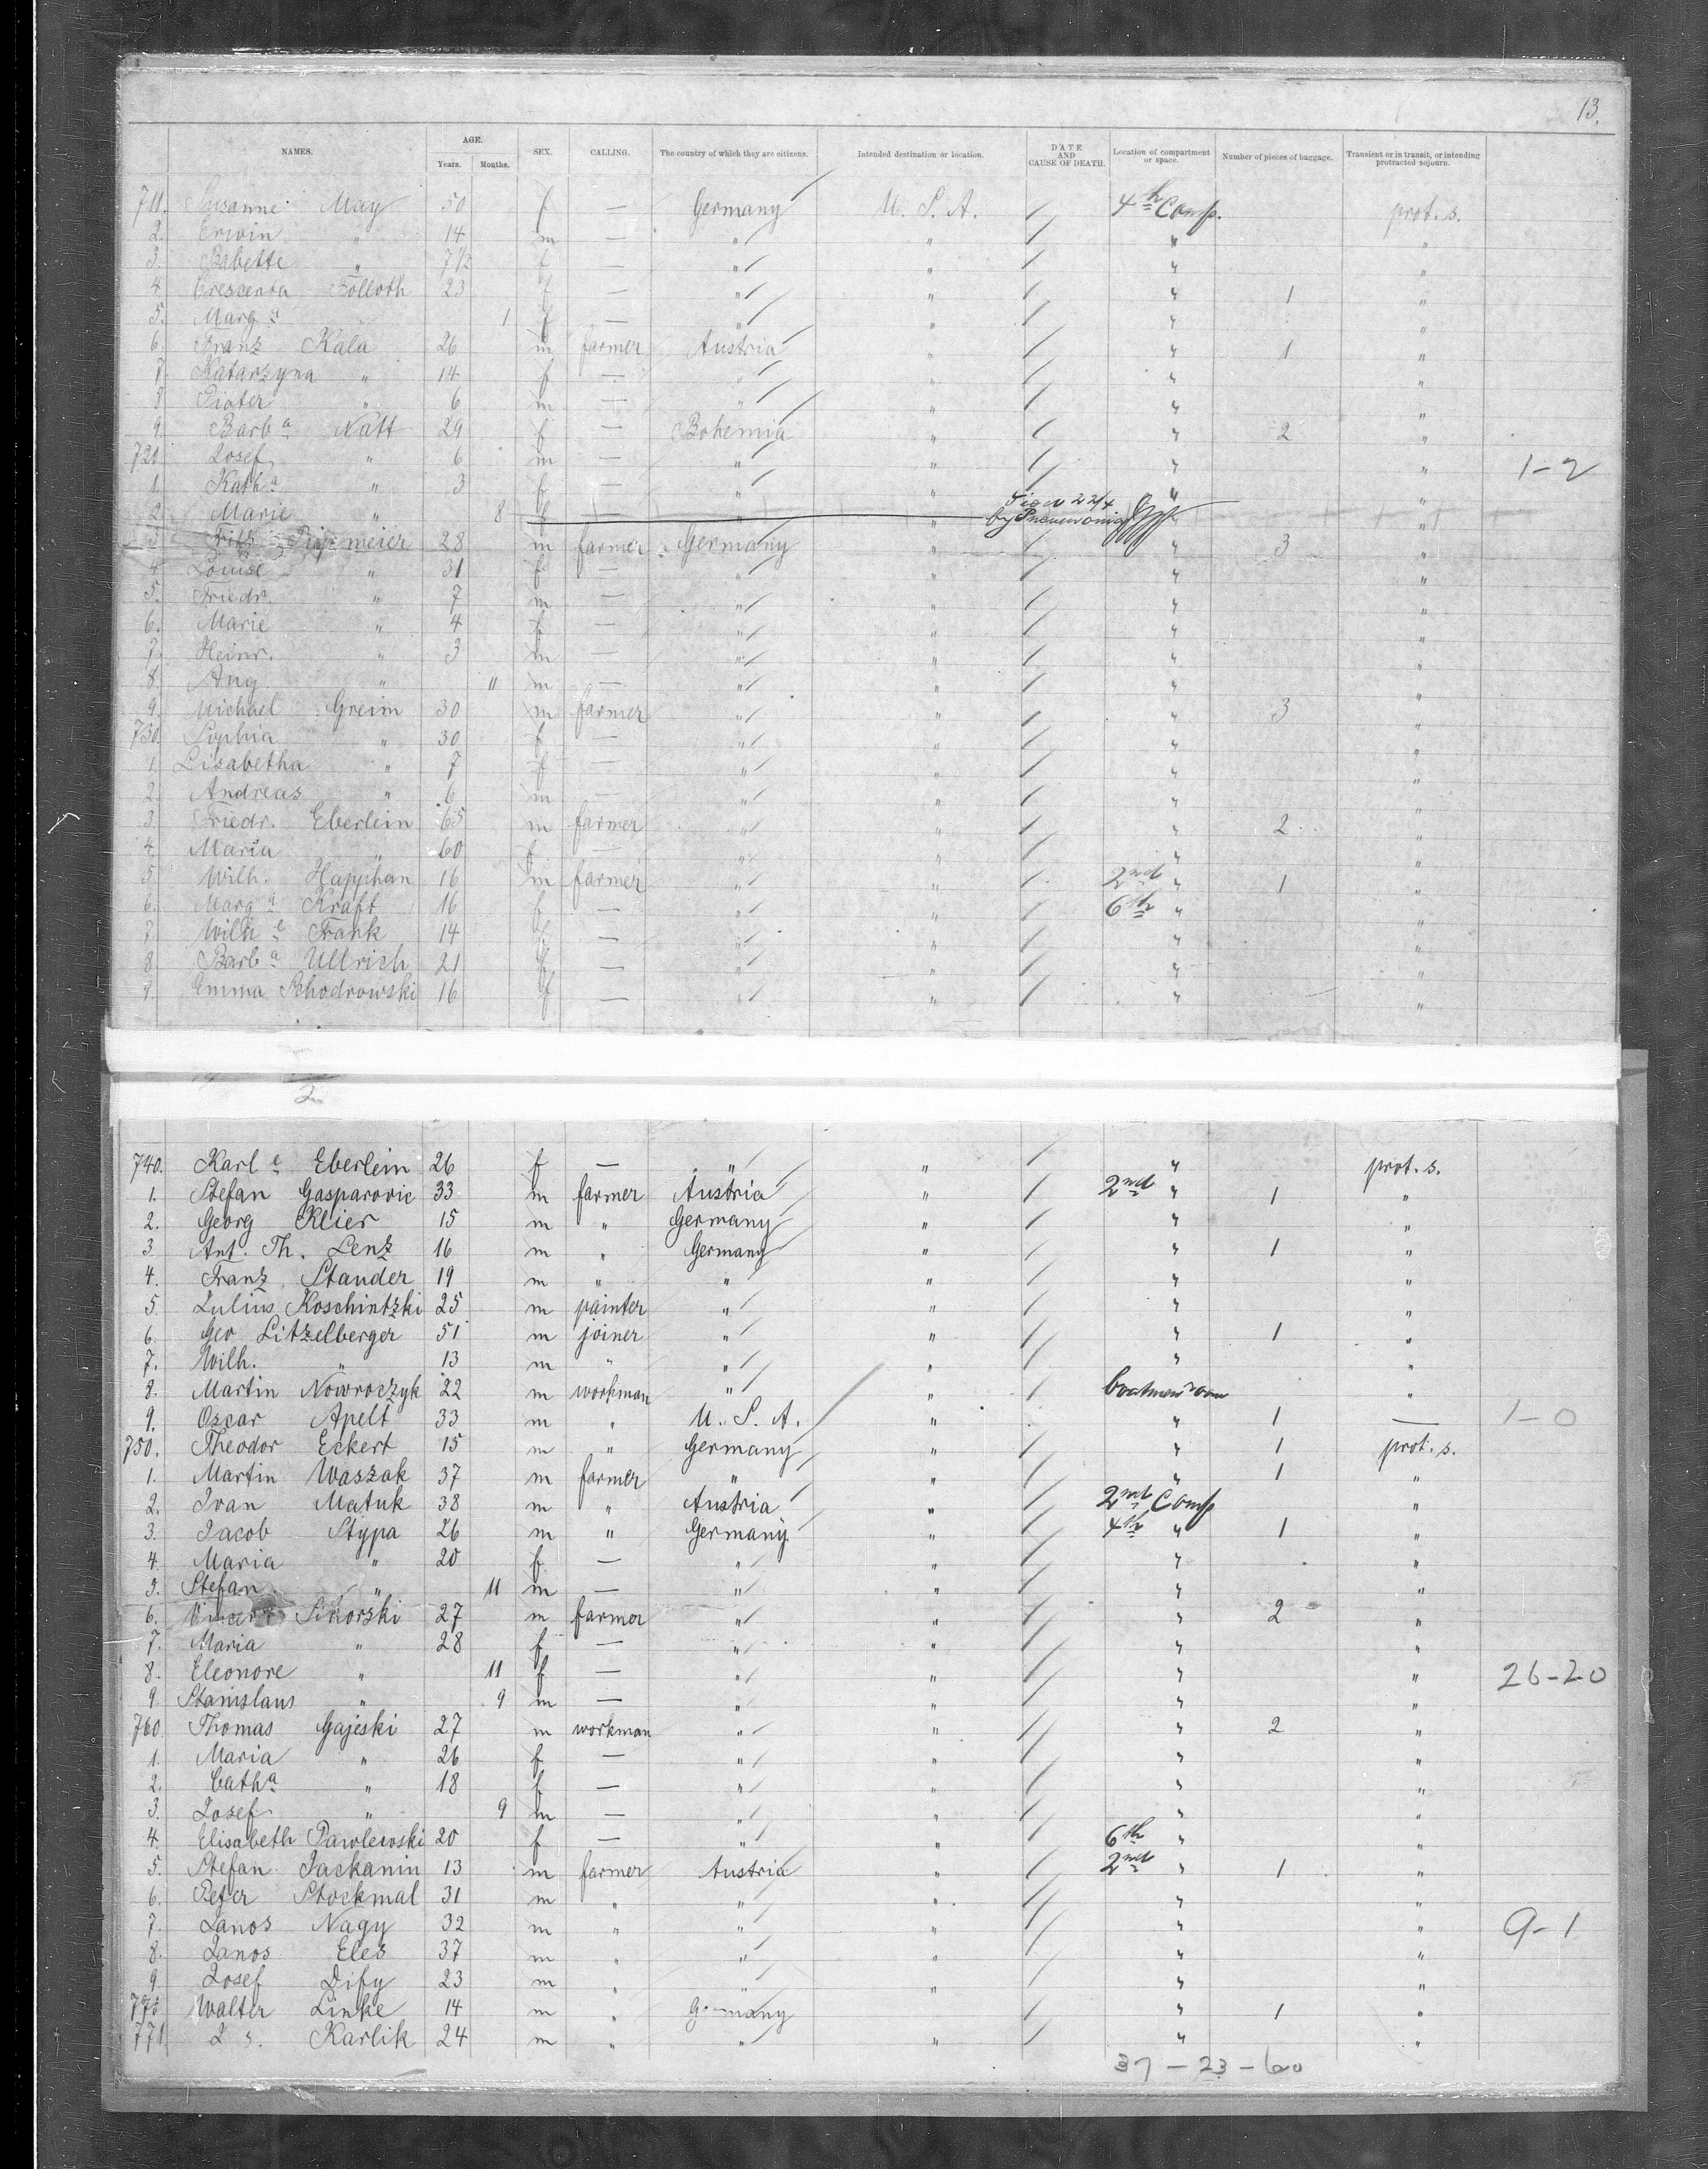 13.
NAMES. AGE. Years. Months. SEX. CALLING. The country of which they are citizens. Intended destination or location. DATE AND CAUSE OF DEATH. Location of compartment or space. Number of pieces of baggage. Transient or in transit, or intending protracted sojourn.
711. Susanne May 50 f — Germany U. S. A. 4th Comp. prot. s.
2. Erwin " 14 m — " " " "
3. Babette " 7½ f — " " " "
4. Crescenta Folloth 23 f — " " " 1 "
5. Marga " 1 f — " " " "
6. Franz Kala 26 m farmer Austria " " 1 "
7. Katarzyna " 14 f — " " " "
8. Pioter " 6 m — " " " "
9. Barba Natt 29 f — Bohemia " " 2 "
720. Josef " 6 m — " " " " 1-2
1. Katha " 3 f — " " " "
2. Marie " 8 f " " Died 22/4 by Pneumonia " "
3. Fritz meier 28 m farmer Germany " " 3 "
4. Louise " 31 f — " " " "
5. Friedr. " 7 m — " " " "
6. Marie " 4 f — " " " "
7. Heinr. " 3 m — " " " "
8. Aug. " 11 m — " " " "
9. Michael Greim 30 m farmer " " " 3 "
730. Sophia " 30 f — " " " "
1. Lisabetha " 7 f — " " " "
2. Andreas " 6 m — " " " "
3. Friedr. Eberlein 65 m farmer " " " 2 "
4. Maria " 60 f — " " " "
5. Wilh. Happhan 16 m farmer " " 2nd " 1 "
6. Marga Kraft 16 f — " " 6th " "
7. Wilhe Frank 14 f — " " " "
8. Barba Ullrich 21 f — " " " "
9. Emma Schodrowski 16 f — " " " "
2
740. Karle Eberlein 26 f — " " " prot. s.
1. Stefan Gasparovic 33 m farmer Austria " 2nd " 1 "
2. Georg Klier 15 m " Germany " " "
3. Ant. Th. Lenz 16 m " Germany " " 1 "
4. Franz Stander 19 m " " " " "
5. Julius Koschintzki 25 m painter " " " "
6. Geo Litzelberger 51 m joiner " " " 1 "
7. Wilh. " 13 m " " " " "
8. Martin Nowroczyk 22 m workman " " "
9. Oscar Apelt 33 m " U. S. A. " " 1 — 1-0
750. Theodor Eckert 15 m " Germany " " 1 prot. s.
1. Martin Waszak 37 m farmer " " " 1 "
2. Ivan Matuk 38 m " Austria " 2nd Comp "
3. Jacob Stypa 26 m " Germany " 4th " 1 "
4. Maria " 20 f — " " " "
5. Stefan " 11 m — " " " "
6. Vincent Sikorski 27 m farmer " " " 2 "
7. Maria " 28 f — " " " "
8. Eleonore " 11 f — " " " " 26-20
9. Stanislaus " 9 m — " " " "
760 Thomas Gajeski 27 m workman " " " 2 "
1. Maria " 26 f — " " " "
2. Catha " 18 f — " " " "
3. Josef " 9 m — " " " "
4. Elisabeth Pawlewski 20 f — " " 6th " "
5. Stefan Jackanin 13 m farmer Austria " 2nd " 1 "
6. Peter Stockmal 31 m " " " " "
7. Janos Nagy 32 m " " " " " 9-1
8. Janos Eles 37 m " " " " "
9. Josef Dify 23 m " " " " "
770 Walter Linke 14 m " Germany " 1 "
771 Karlik 24 m " " " " "
37 - 23 - 60